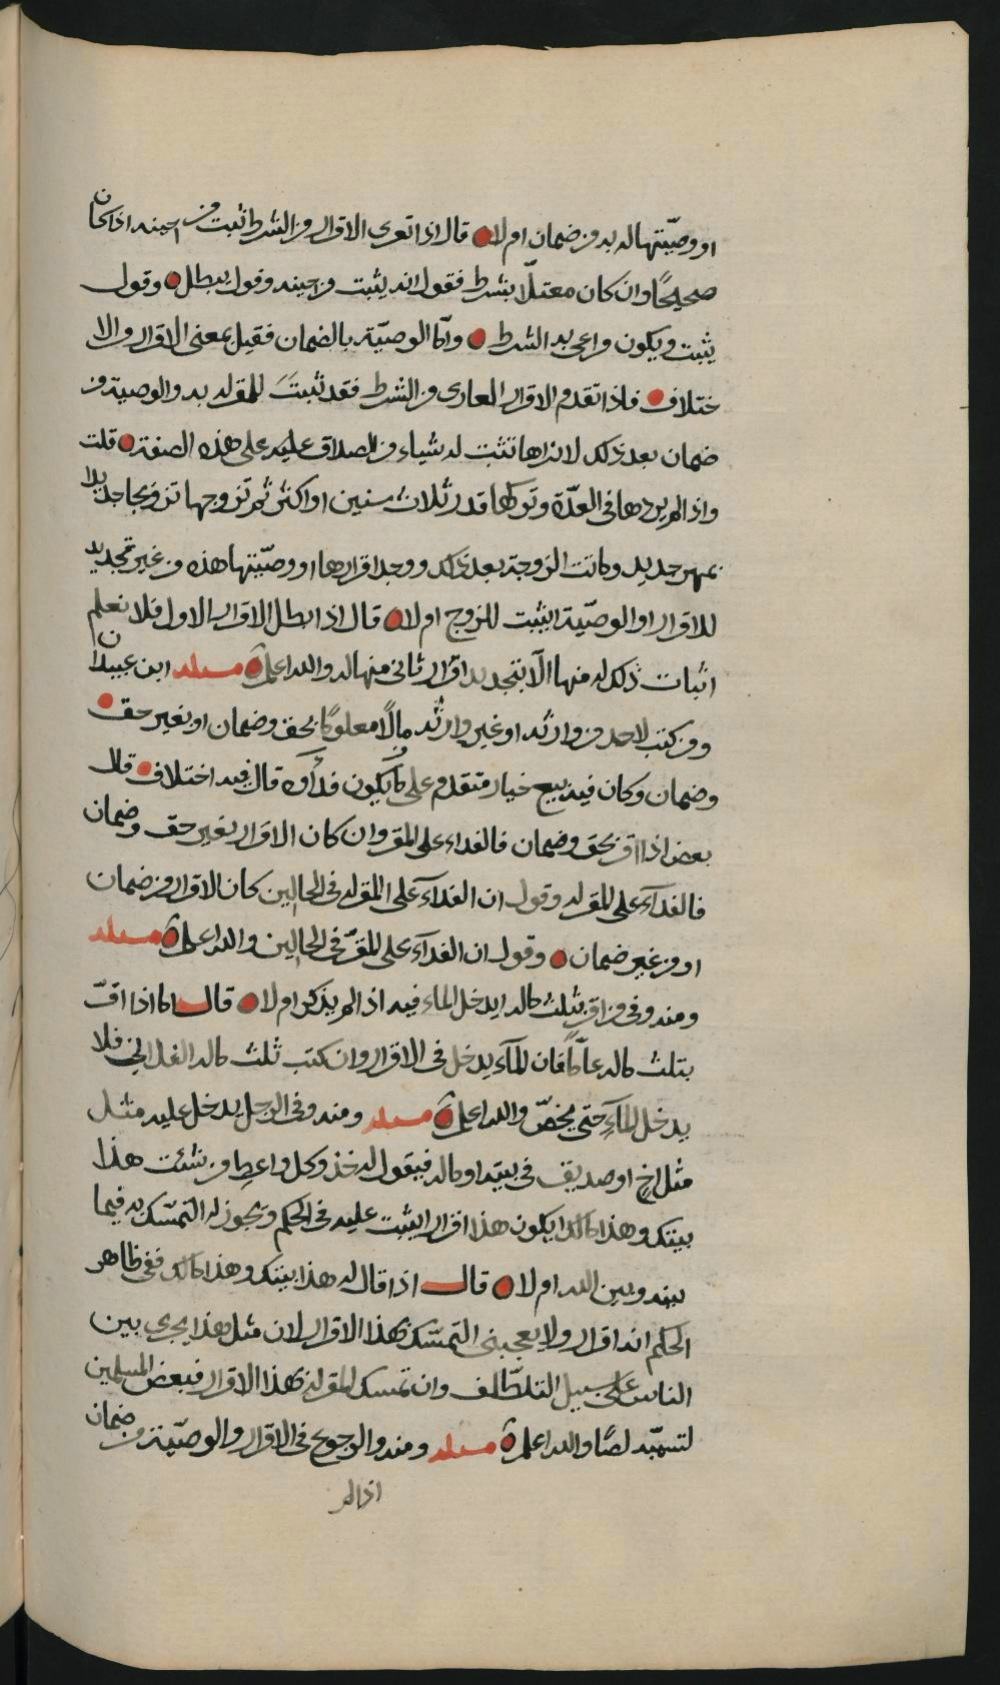 او وصيّتها له به من ضمان ام لا قال اذا تعرى الاقرار من الشرط ثبت من حينه اذا كان
صحيحًا وان كان معتلًا بشرط فقول انه يثبت من حينه وقول يبطل وقول
يثبت ويكون مراعى به الشرط وامّا الوصيّة بالضمان فقيل بمعنى الاقرار والا
ختلاف فاذا تقدم الاقرار العارى من الشرط فقد ثبتَ للمقر له به والوصية من
ضمان بعد ذلك لانها تثبت له شياء من الصداق عليه على هذه الصفة قلت
واذا لم يردها فى العدّة وتركها قدر ثلاث سنين او اكثر ثم تزوجها تزويجا جديدا
بمهر جديد وماتت الزوجة بعد ذلك ووجد اقرارها او وصيّتها هذه من غير تجديد
للاقرار او الوصيّة ايثبت للزوج ام لا قال اذا بطل الاقرار الاول فلا نعلم
اثبات ذلك له منها الّا بتجديد اقرار ثانى منها له والله اعلم مسئلة ابن عبيدان
ومن كتب لاحد من وارثه او غير وارثه مالًا معلومًا بحق وضمان او بغير حق
وضمان وكان فيه بيع خيار متقدم على من يكون فداؤه قال فيه اختلاف قال
بعض اذا اقر بحق وضمان فالفداء على المقر وان كان الاقرار بغير حق وضمان
فالفدآء على المقر له وقول ان الفدآء على المقر له فى الحالين كان الاقرار من ضمان
او من غير ضمان وقول ان الفدآء على المقرّ فى الحالين والله اعلم مسئلة
ومنه وفى من اقر بثلث ماله ايدخل الماء فيه اذا لم يذكر ام لا قال اما اذا اقرّ
بثلث ماله عامًا فان المآء يدخل فى الاقرار وان كتب ثلث ماله الفلانى فلا
يدخل المآء حتى يخصّ والله اعلم مسئلة ومنه وفى الرجل يدخل عليه مثل
مثل اخٍ او صديق فى بيته او ماله فيقول له خذ وكل واعط من شئت هذا
بيتك وهذا مالك ايكون هذا اقرارا يثبت عليه فى الحكم ويجوز له التمسّك به فيما
بينه وبين الله ام لا قال اذا قال له هذا بيتك وهذا مالك ففى ظاهر
الحكم انه اقرار ولا يعجبنى التمسّك بهذا الاقرار لان مثل هذا يجرى بين
الناس على سبيل التلاطف وان تمسك المقر له بهذا الاقرار فبعض المسلمين
لتسمّيه لصًّا والله اعلم مسئلة ومنه والرجوع فى الاقرار والوصيّة من ضمان
اذا لم